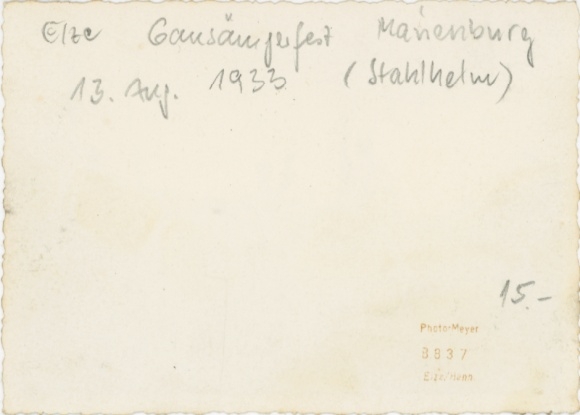 Elze Gausängerfest Marienburg
13. Aug. 1933 (Stahlhelm)
15.-
Photo-Meyer
8837
Elze/Hann